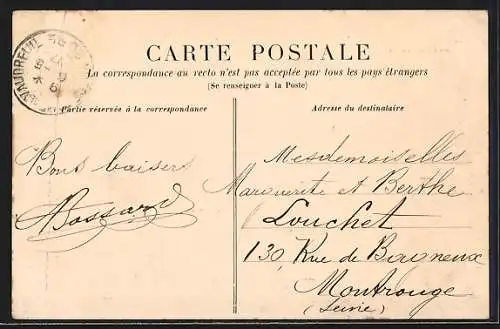 CARTE POSTALE
La correspondance au recto n'est pas acceptée par tous les pays étrangers
(Se renseigner à la Poste)
Partie réservée à la correspondance
Adresse du destinataire
VAUDREUIL
Bons baisers
Bossard
Mesdemoiselles
Marguerite et Berthe
Louchet
130, Rue de Bagneux
Montrouge
(Seine)